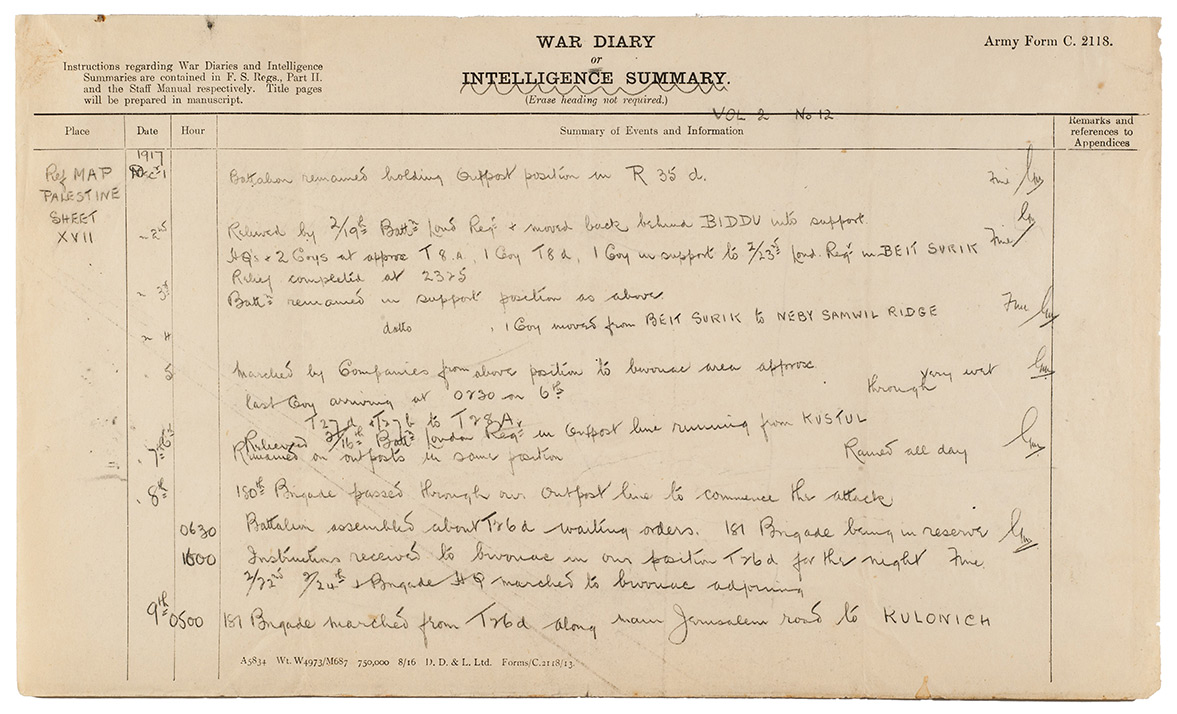 WAR DIARY
or
INTELLIGENCE SUMMARY.
(Erase heading not required.)
Army Form C. 2118.
Instructions regarding War Diaries and Intelligence
Summaries are contained in F. S. Regs., Part II.
and the Staff Manual respectively. Title pages
will be prepared in manuscript.
VOL 2 No 12
Place Date Hour Summary of Events and Information Remarks and
references to
Appendices
1917
Ref MAP
PALESTINE
SHEET
XVII
Decr 1 Battalion remained holding Outpost position in R 35 d. Fine
" 2nd Relieved by 2/19th Battn Lond Regt + moved back behind BIDDU into support.
HQ's + 2 Coys at approx T8.a, 1 Coy T8d, 1 Coy in support to 2/23rd Lond. Regt in BEIT SURIK Fine
Relief completed at 2325
" 3rd Battn remained in support position as above.
" 4 ditto, 1 Coy moved from BEIT SURIK to NEBY SAMWIL RIDGE Fine
5 Marched by Companies from above position to bivouac area approx
T27d + T27b to T28A. last Coy arriving at 0230 on 6th very wet through
6th Relieved 2/16th Battn London Regt in Outpost line running from KUSTUL
" 7th Remained on outposts in same position Rained all day
" 8th 180th Brigade passed through our Outpost line to commence the attack
0630 Battalion assembled about T26d waiting orders. 181 Brigade being in reserve
1600 Instructions received to bivouac in our position T26d for the night Fine
2/22nd 2/24th + Brigade HQ marched to bivouac adjoining
9th 0500 181 Brigade marched from T26d along main Jerusalem road to KULONICH
A5834 Wt. W4973/M687 750,000 8/16 D. D. & L. Ltd. Forms/C.2118/13.